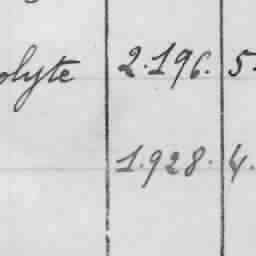 olyte 2.196. 5.
1.928. 4.